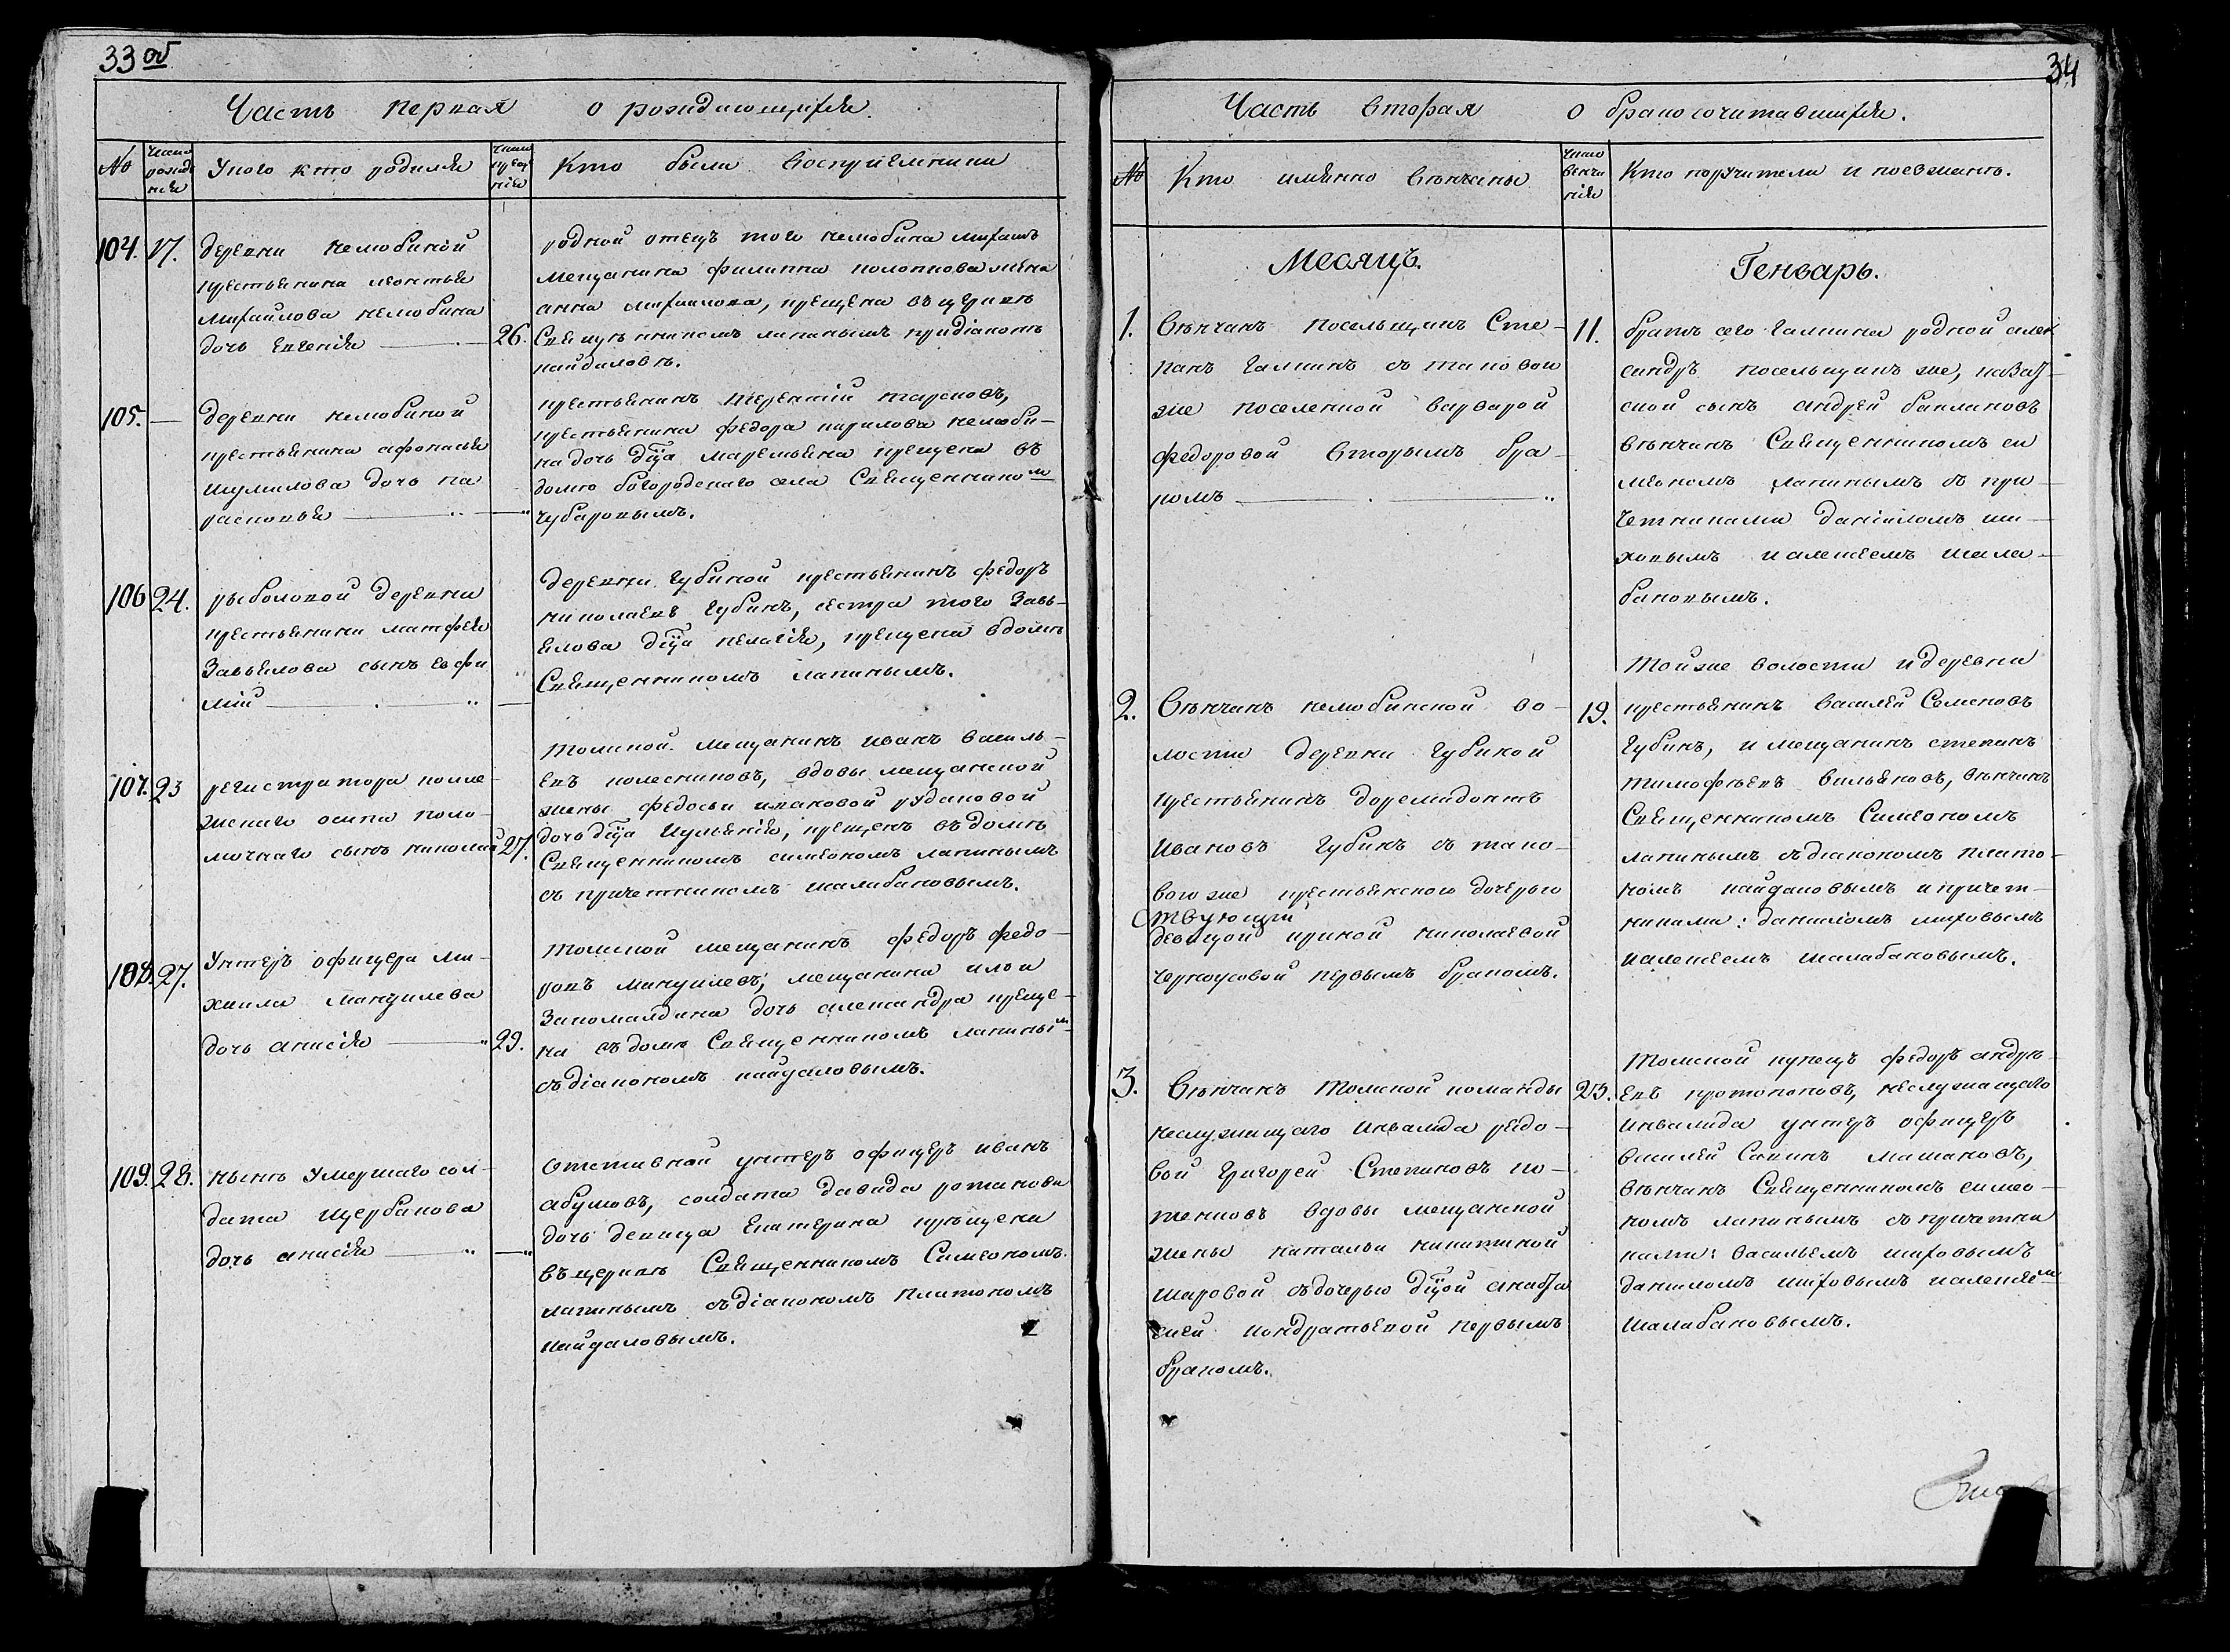 33 об
Часть первая о рождающихся.
№
число рожде нія
У кого кто родился
число креще нія
Кто были воспріемники
104. 17. деревни нелюбиной
крестьянина леонтья
Михайлова нелюбина
дочь Евгенія 26.
родной отецъ того нелюбина михаилъ
мещанина филиппа колопкова жена
анна михаилова, крещена въ церкви
Священникомъ лапинымъ при діаконѣ
кайдаловѣ.
105. — деревни нелюбиной
крестьянина афонасья
шумилова дочь па
расковья
крестьянинъ терентій тарсковъ,
крестьянина федора кирилова нелюби-
на дочь дѣца маремьяна крещена въ
домѣ богородскаго села Священникомъ
чубаровымъ.
106 24. рыболовой деревни
крестьянина матфея
Завьялова сынъ евфи
мій
деревни губиной крестьянинъ федоръ
николаевъ губинъ, сестра того Завь-
ялова дѣца пелагія, крещена вдомѣ
Священникомъ лапинымъ.
107. 23 регистратора колле-
жскаго осипа поло-
мочнаго сынъ николай 27.
томской мещанинъ иванъ василь-
евъ колесниковъ, вдовы мещанской
жены федосьи ивановой рудаковой
дочь дѣца Иульянія, крещенъ въ домѣ
Священникомъ симеономъ лапинымъ
съ причетникомъ шалабановымъ.
108. 27. Унтеръ офицера ми-
хаила мануилева
дочь анисія 29.
томской мещанинъ федоръ федо-
ровъ мануилевъ, мещанина ильи
Запомалдина дочь александра креще-
на въ домѣ Священникомъ лапинымъ
съ діакономъ кайдаловымъ.
109. 28. нынѣ умершаго сол-
дата щербакова
дочь анисія
Отставной унтеръ офицеръ иванъ
абумовъ, солдата давида ротанова
дочь девица Екатерина крѣщена
въ церкви Священникомъ Симеономъ
лапинымъ съ діакономъ платономъ
кайдаловымъ.
34
Часть вторая о бракосочитавшихся.
№
Кто именно вѣнчаны
число венча нія
Кто поручители и поезжанѣ.
Месяцъ. Генварь.
1. Вѣнчанъ посельщикъ Сте-
панъ галкинъ съ таковою
же поселенкой варварой
федоровой вторымъ бра-
комъ
11. братъ сего галкина родной алек
сандръ посельщикъ же, казац-
ской сынъ андрей баклановъ
вѣнчанъ Священникомъ си
меономъ лапинымъ съ при-
четниками даніиломъ ши-
ховымъ и алексѣемъ шала-
бановымъ.
2. Вѣнчанъ нелюбинской во-
лости деревни губиной
крестьянинъ доремидонтъ
Ивановъ губинъ съ тако-
вою же крестьянскою дочерью
ствующій
девицой ириной николаевой
черноусовой первымъ бракомъ.
19. той же волости и деревни
крестьянинъ василей Семеновъ
губинъ, и мещанинъ степанъ
тимофѣевъ вильяновъ, вѣнчанъ
Священникомъ Симеономъ
лапинымъ съ діакономъ плато-
номъ кайдаловымъ и причет-
никами: даниломъ шиховымъ
и алексеемъ шалабановымъ.
3. Вѣнчанъ томской команды
неслужащаго инвалида рядо-
вой григорей Степановъ по-
тениновъ вдовы мещанской
жены натальи никитиной
шаровой съ дочерью дѣцой анаста
сией кондратьевой первымъ
бракомъ.
23. томской купецъ федоръ андре-
евъ протопоповъ, неслужащаго
инвалида унтеръ офицеръ
василей Савинъ машановъ,
вѣнчанъ Священникомъ симео-
номъ лапинымъ съ причетни
ками: васильемъ шиховымъ
даниломъ шиховымъ и алексѣемъ
шалабановымъ.